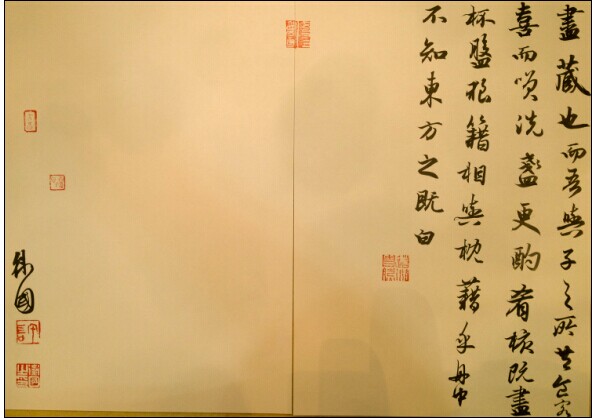 盡藏也而吾與子之所共食客
喜而笑洗盞更酌肴核既盡
杯盤狼籍相與枕藉乎舟中
不知東方之既白